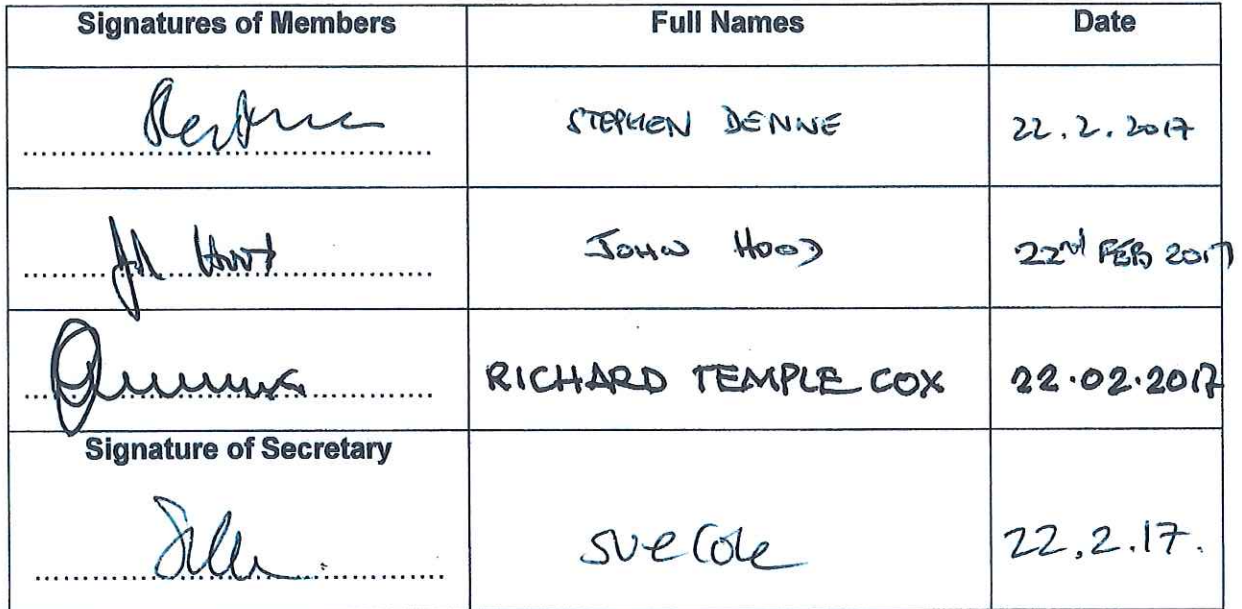 Signatures of Members Full Names Date
STEPHEN DENNE 22.2.2017
JOHN HOOD 22nd FEB 2017
RICHARD TEMPLE COX 22.02.2017
Signature of Secretary
Sue Cole 22.2.17.